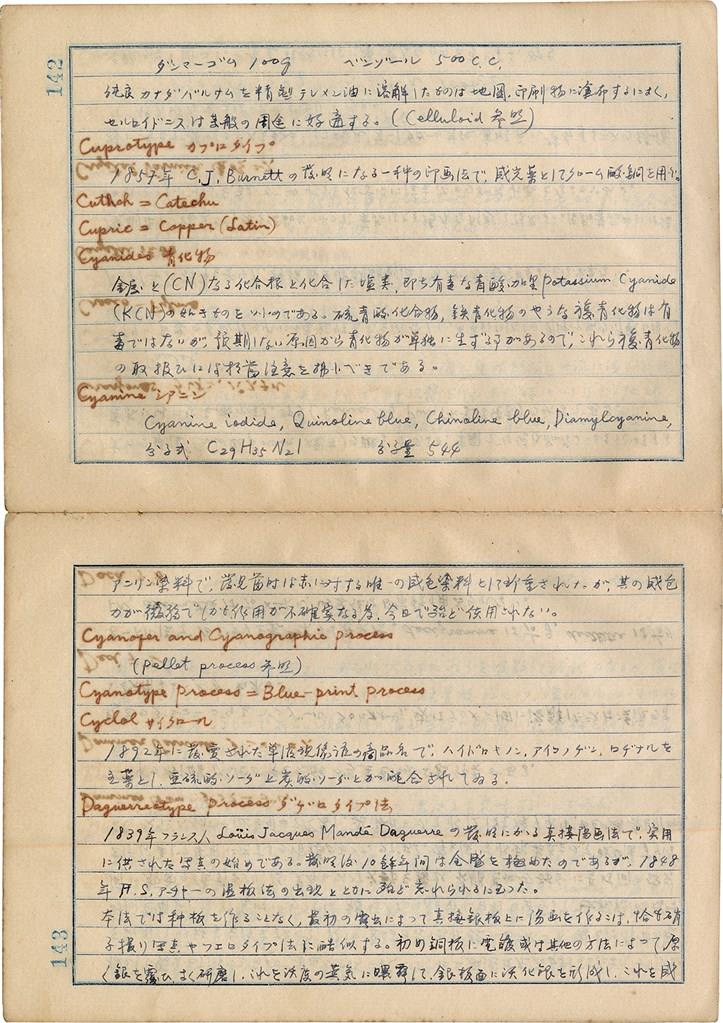 142
ダンマーゴム 100g ベンゾール 500 c.c.
純良カナダバルサムを精製テレメン油に溶解したのは地図、印刷物に塗布するによく、
セルロイドニスは其般の用途に好適する。(Celluloid 参照)
Cuprotype カプロタイプ
1857年 C.J. Burnett の発明になる一種の印画法で、感光薬としてクローム酸銅を用ふ。
Cuthch = Catechu
Cupric = Copper (Latin)
Cyanides 青化物
金属と(CN)なる化合根と化合した塩類、即ち有毒な青酸加里 Potassium Cyanide
(KCN)の如きものを いふのである。硫青酸化合物、鉄青化物のやうな複青化物は有
毒ではないが、予期しない原因から青化物が単独に生ずる事があるので、これら複青化物
の取扱ひには相当注意を拂ふべきである。
Cyanine シアニン
Cyanine iodide, Quinoline blue, Chinoline blue, Diamylcyanine,
分子式 C29H35N2I 分子量 544
アニリン染料で、発見当時は赤に対する唯一の感色染料として珍重されたが、其の感色
力が微弱でしかも作用が不確実なる為、今日では殆ど使用されない。
Cyanofer and Cyanographic process
(Pellet process 参照)
Cyanotype Process = Blue-print process
Cyclol サイクロール
1892年に発売された単液現像液の商品名で、ハイドロキノン、アイコノゲン、ロヂナルを
主薬とし、亜硫酸ソーダと炭酸ソーダとが配合されてゐる.
Daguerreotype Process ダゲロタイプ法
1839年フランス人 Louis Jacques Mandé Daguerre の発明にかかる直接陽画法で、実用
に供された写真の始めである。発明後10余年間は全盛を極めたのであるが、1848
年 F.S.アーチャーの湿板法の出現とともに殆ど忘れられるに至った。
本法では種板を作ることなく、最初の露出によって直接銀板上に陽画を作ること、恰も硝
子撮り写真やフェロタイプ法に酷似する。初め銅板に電鍍或は其他の方法によって厚
く銀を覆ひ、よく研磨し、これを沃度の蒸気に曝露して、銀板面に沃化銀を形成し、これを感
143